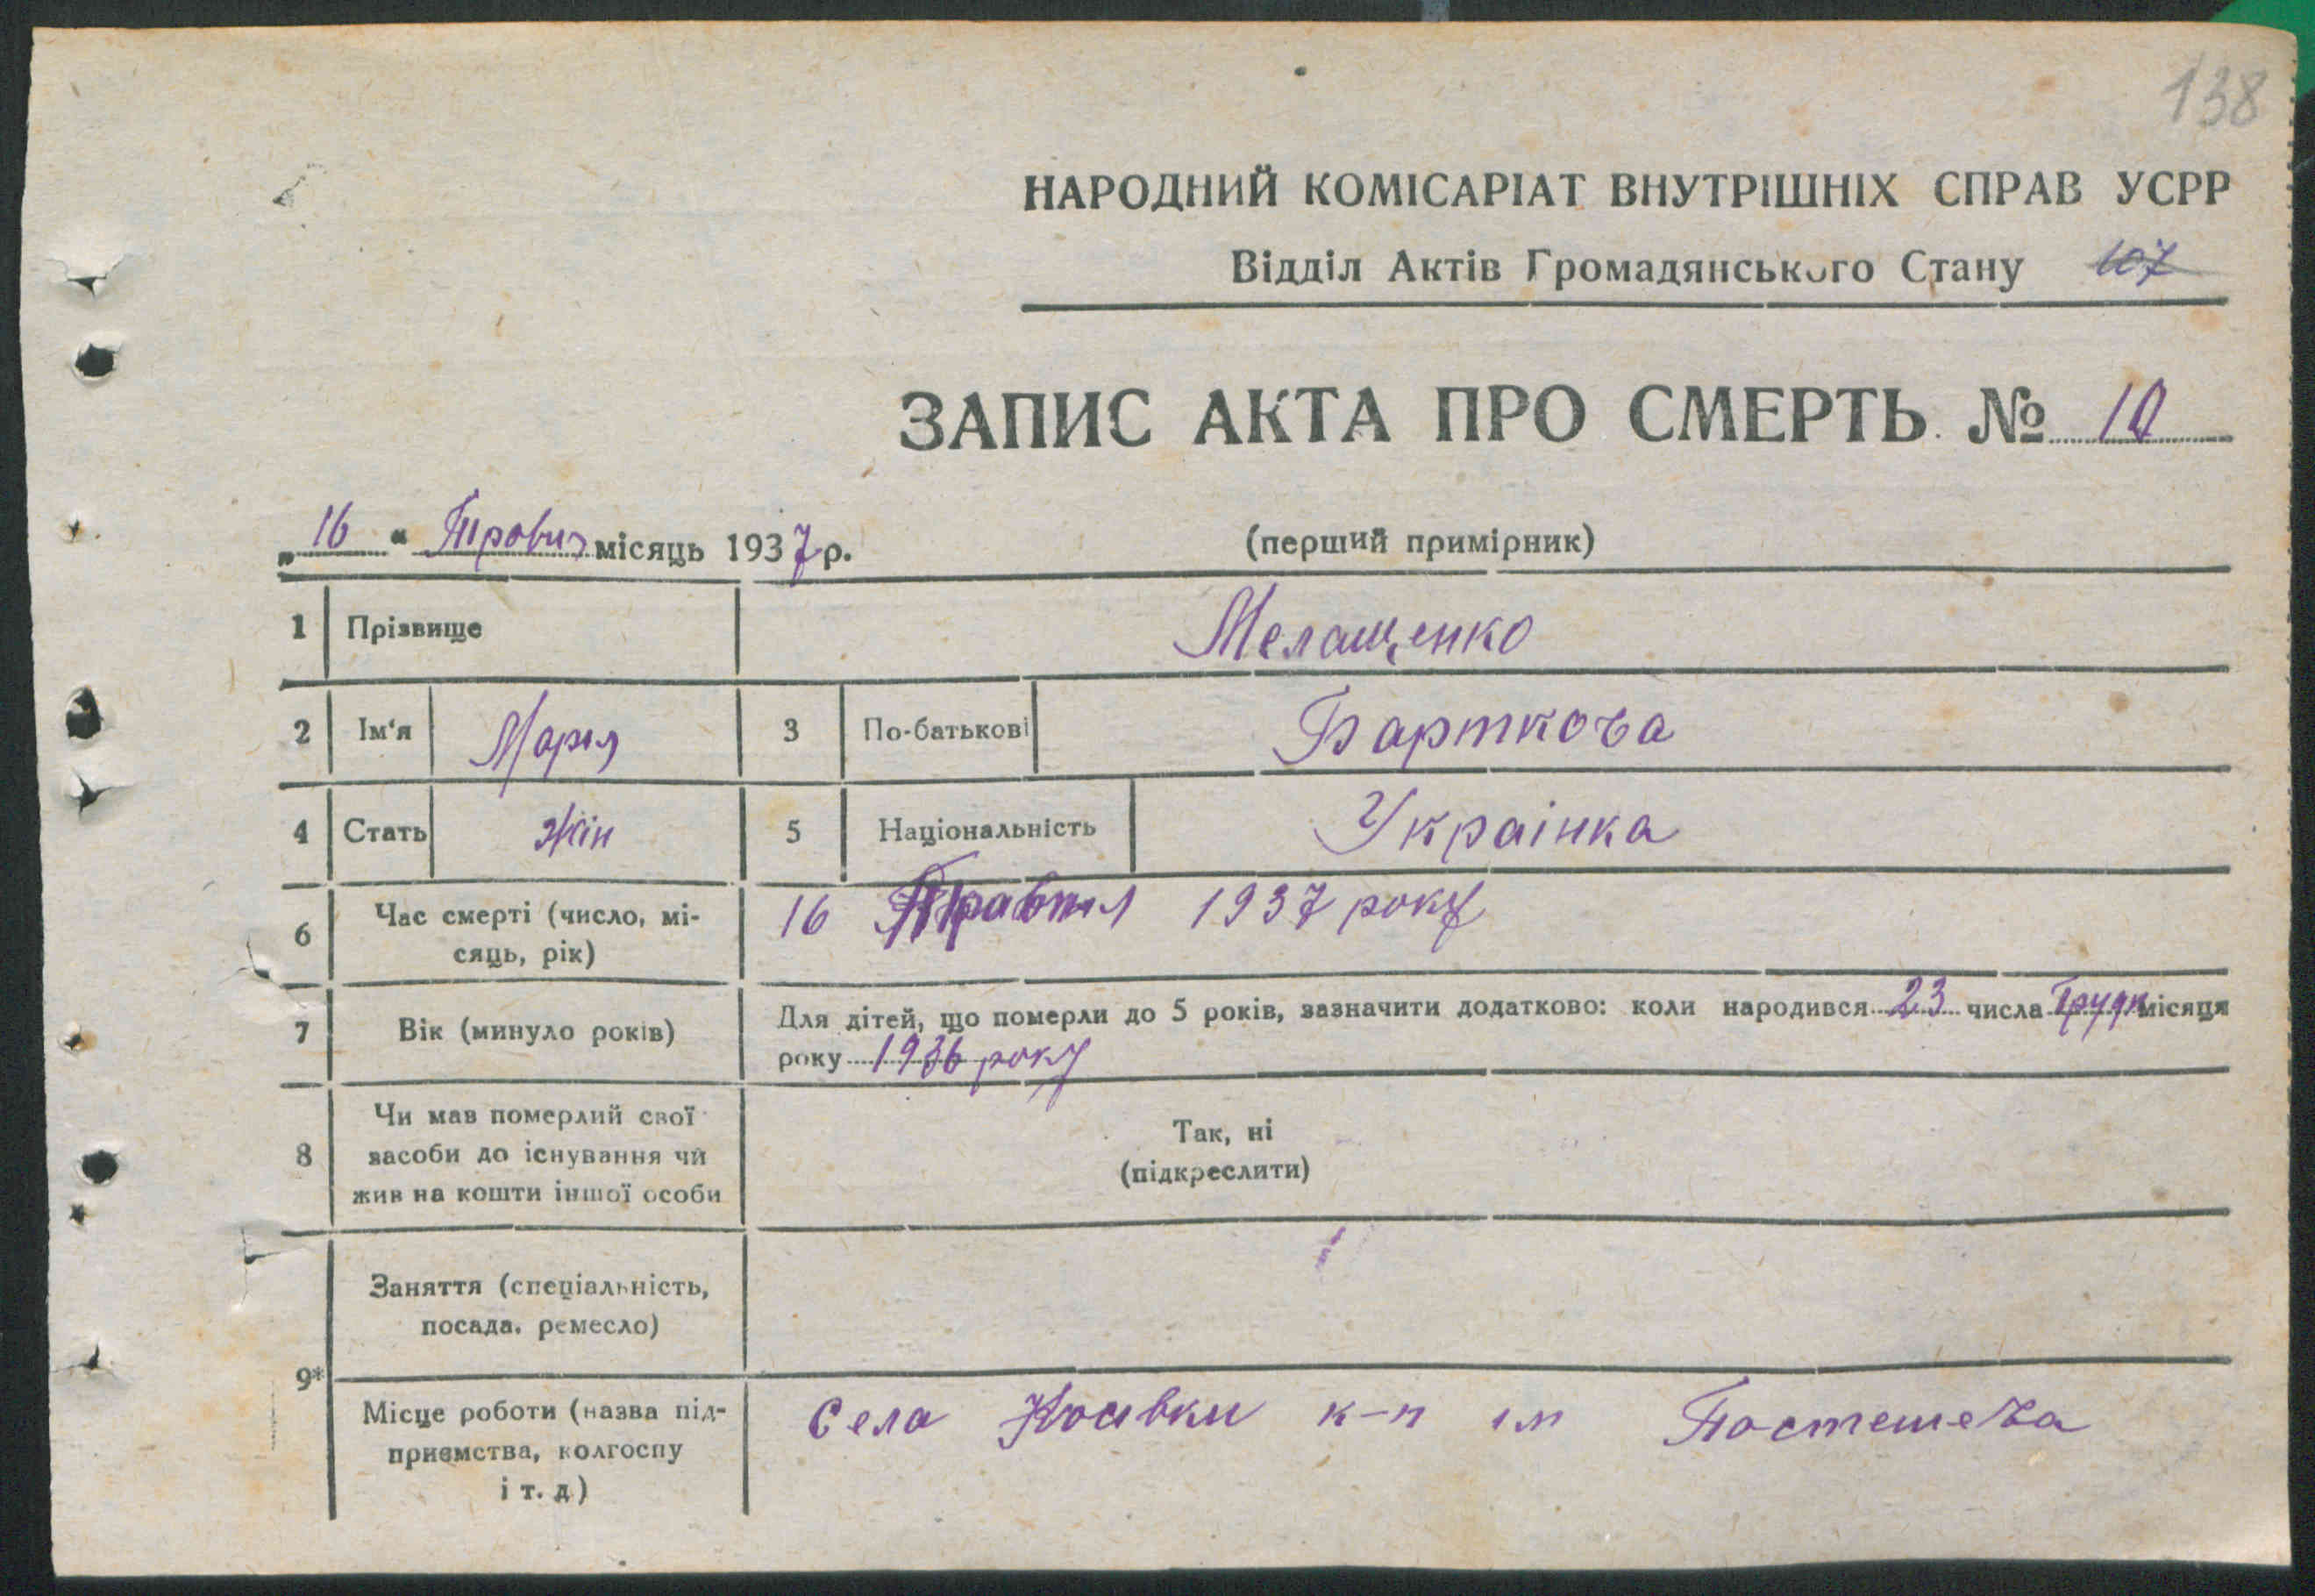 138
НАРОДНИЙ КОМІСАРІАТ ВНУТРІШНІХ СПРАВ УСРР
Відділ Актів Громадянського Стану 107
ЗАПИС АКТА ПРО СМЕРТЬ № 10
„16“ місяць 1937 р.
(перший примірник)
1 Прізвище Мелащенко
2 Ім'я Марія 3 По-батькові Барткова
4 Стать жін 5 Національність Украінка
6 Час смерті (число, мі-
сяць, рік) 16 Травня 1937 року
7 Вік (минуло років) Для дітей, що померли до 5 років, зазначити додатково: коли народився 23 числа Грудн місяця
року 1936 року
8 Чи мав померлий свої
засоби до існування чи
жив на кошти іншої особи
Так, ні
(підкреслити)
9* Заняття (спеціальність,
посада, ремесло)
Місце роботи (назва під-
приємства, колгоспу
і т. д)
Села к-п ім Постешева